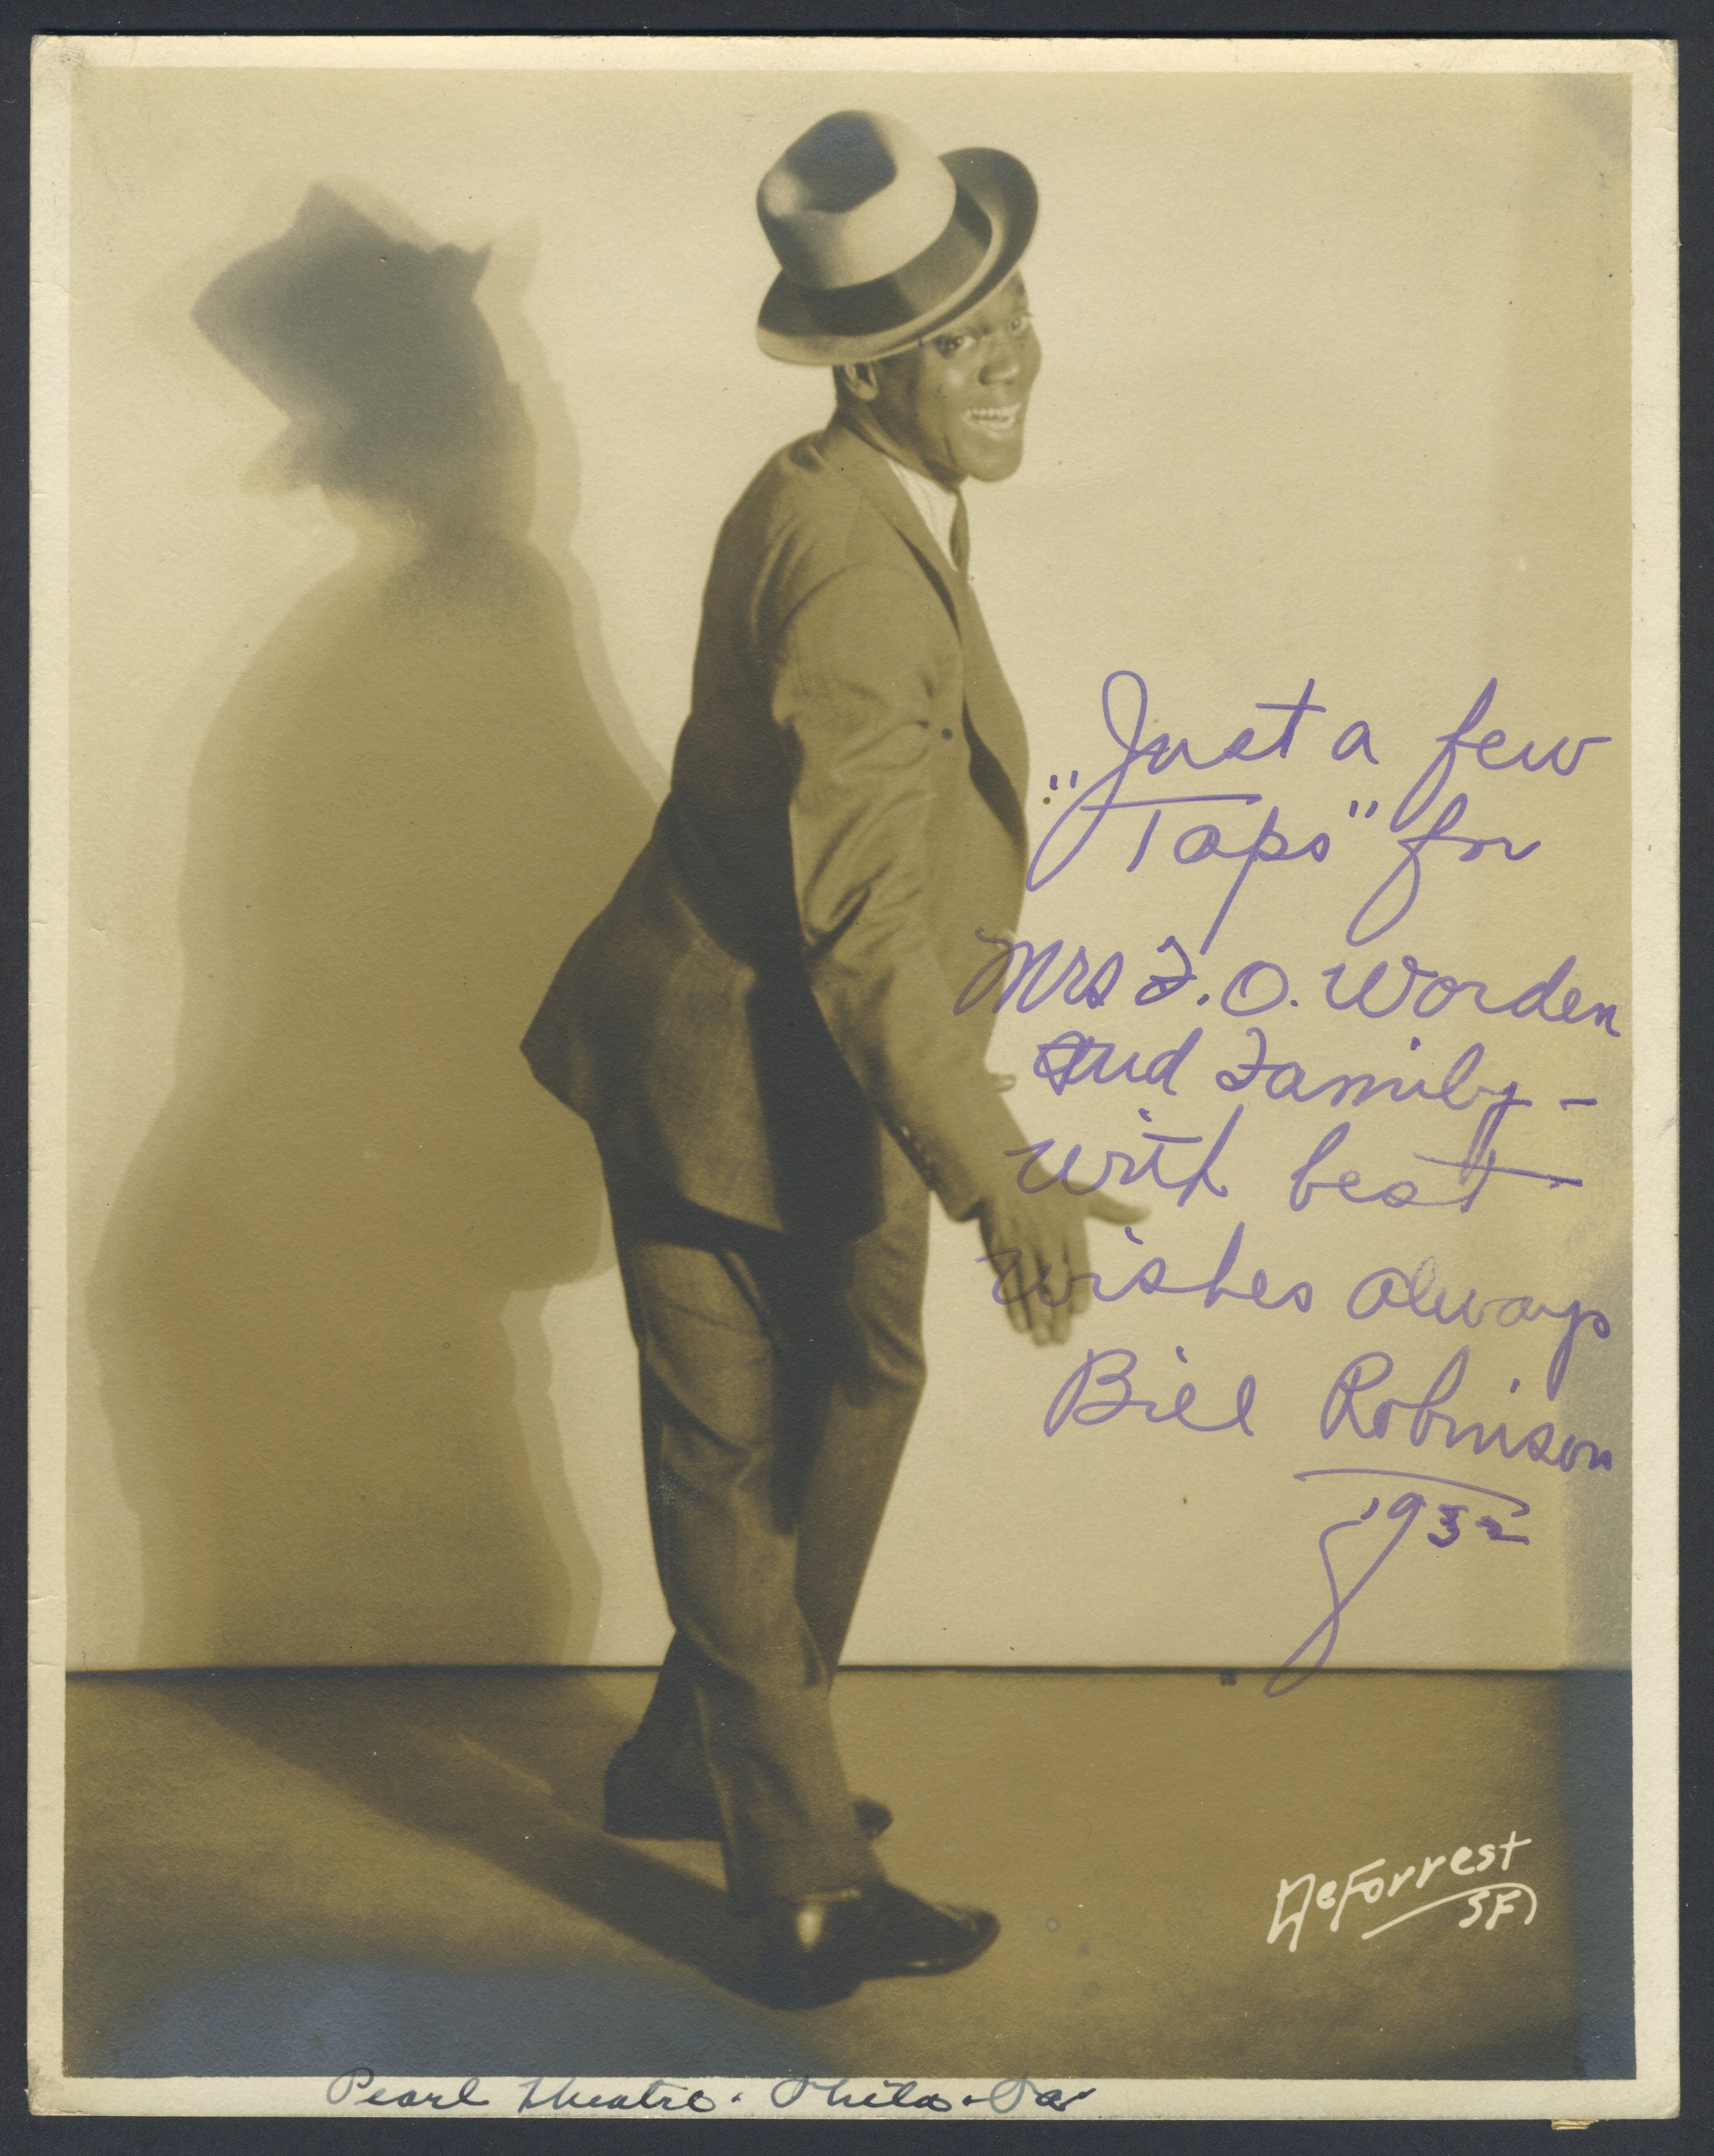 "Just a few
Taps" for
Mrs F. O. Worden
and Family -
with best
wishes always
Bill Robinson
1932
DeForrest
SF
Pearl Theatre. Phila. Pa